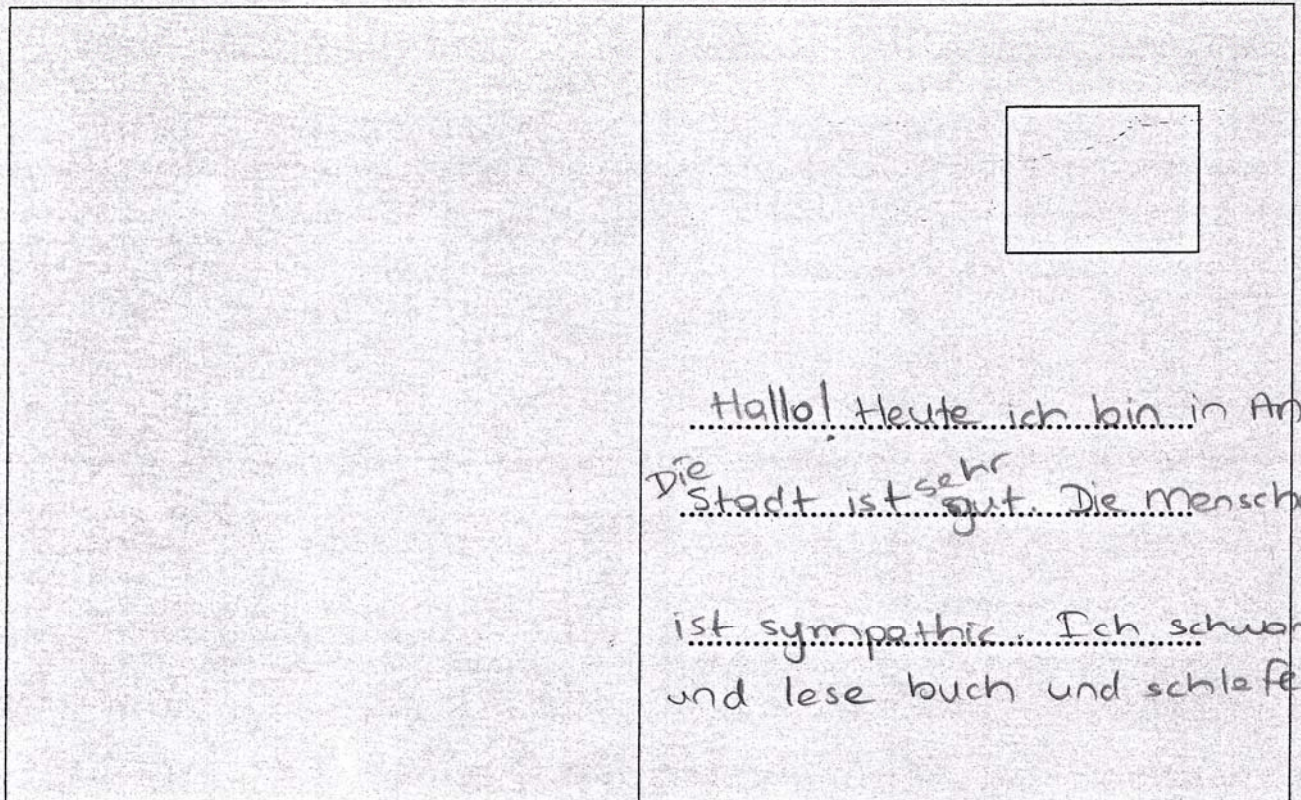 Hallo! Heute ich bin in
Die Stadt ist sehr gut. Die
ist sympathic. Ich
und lese buch und schlafe